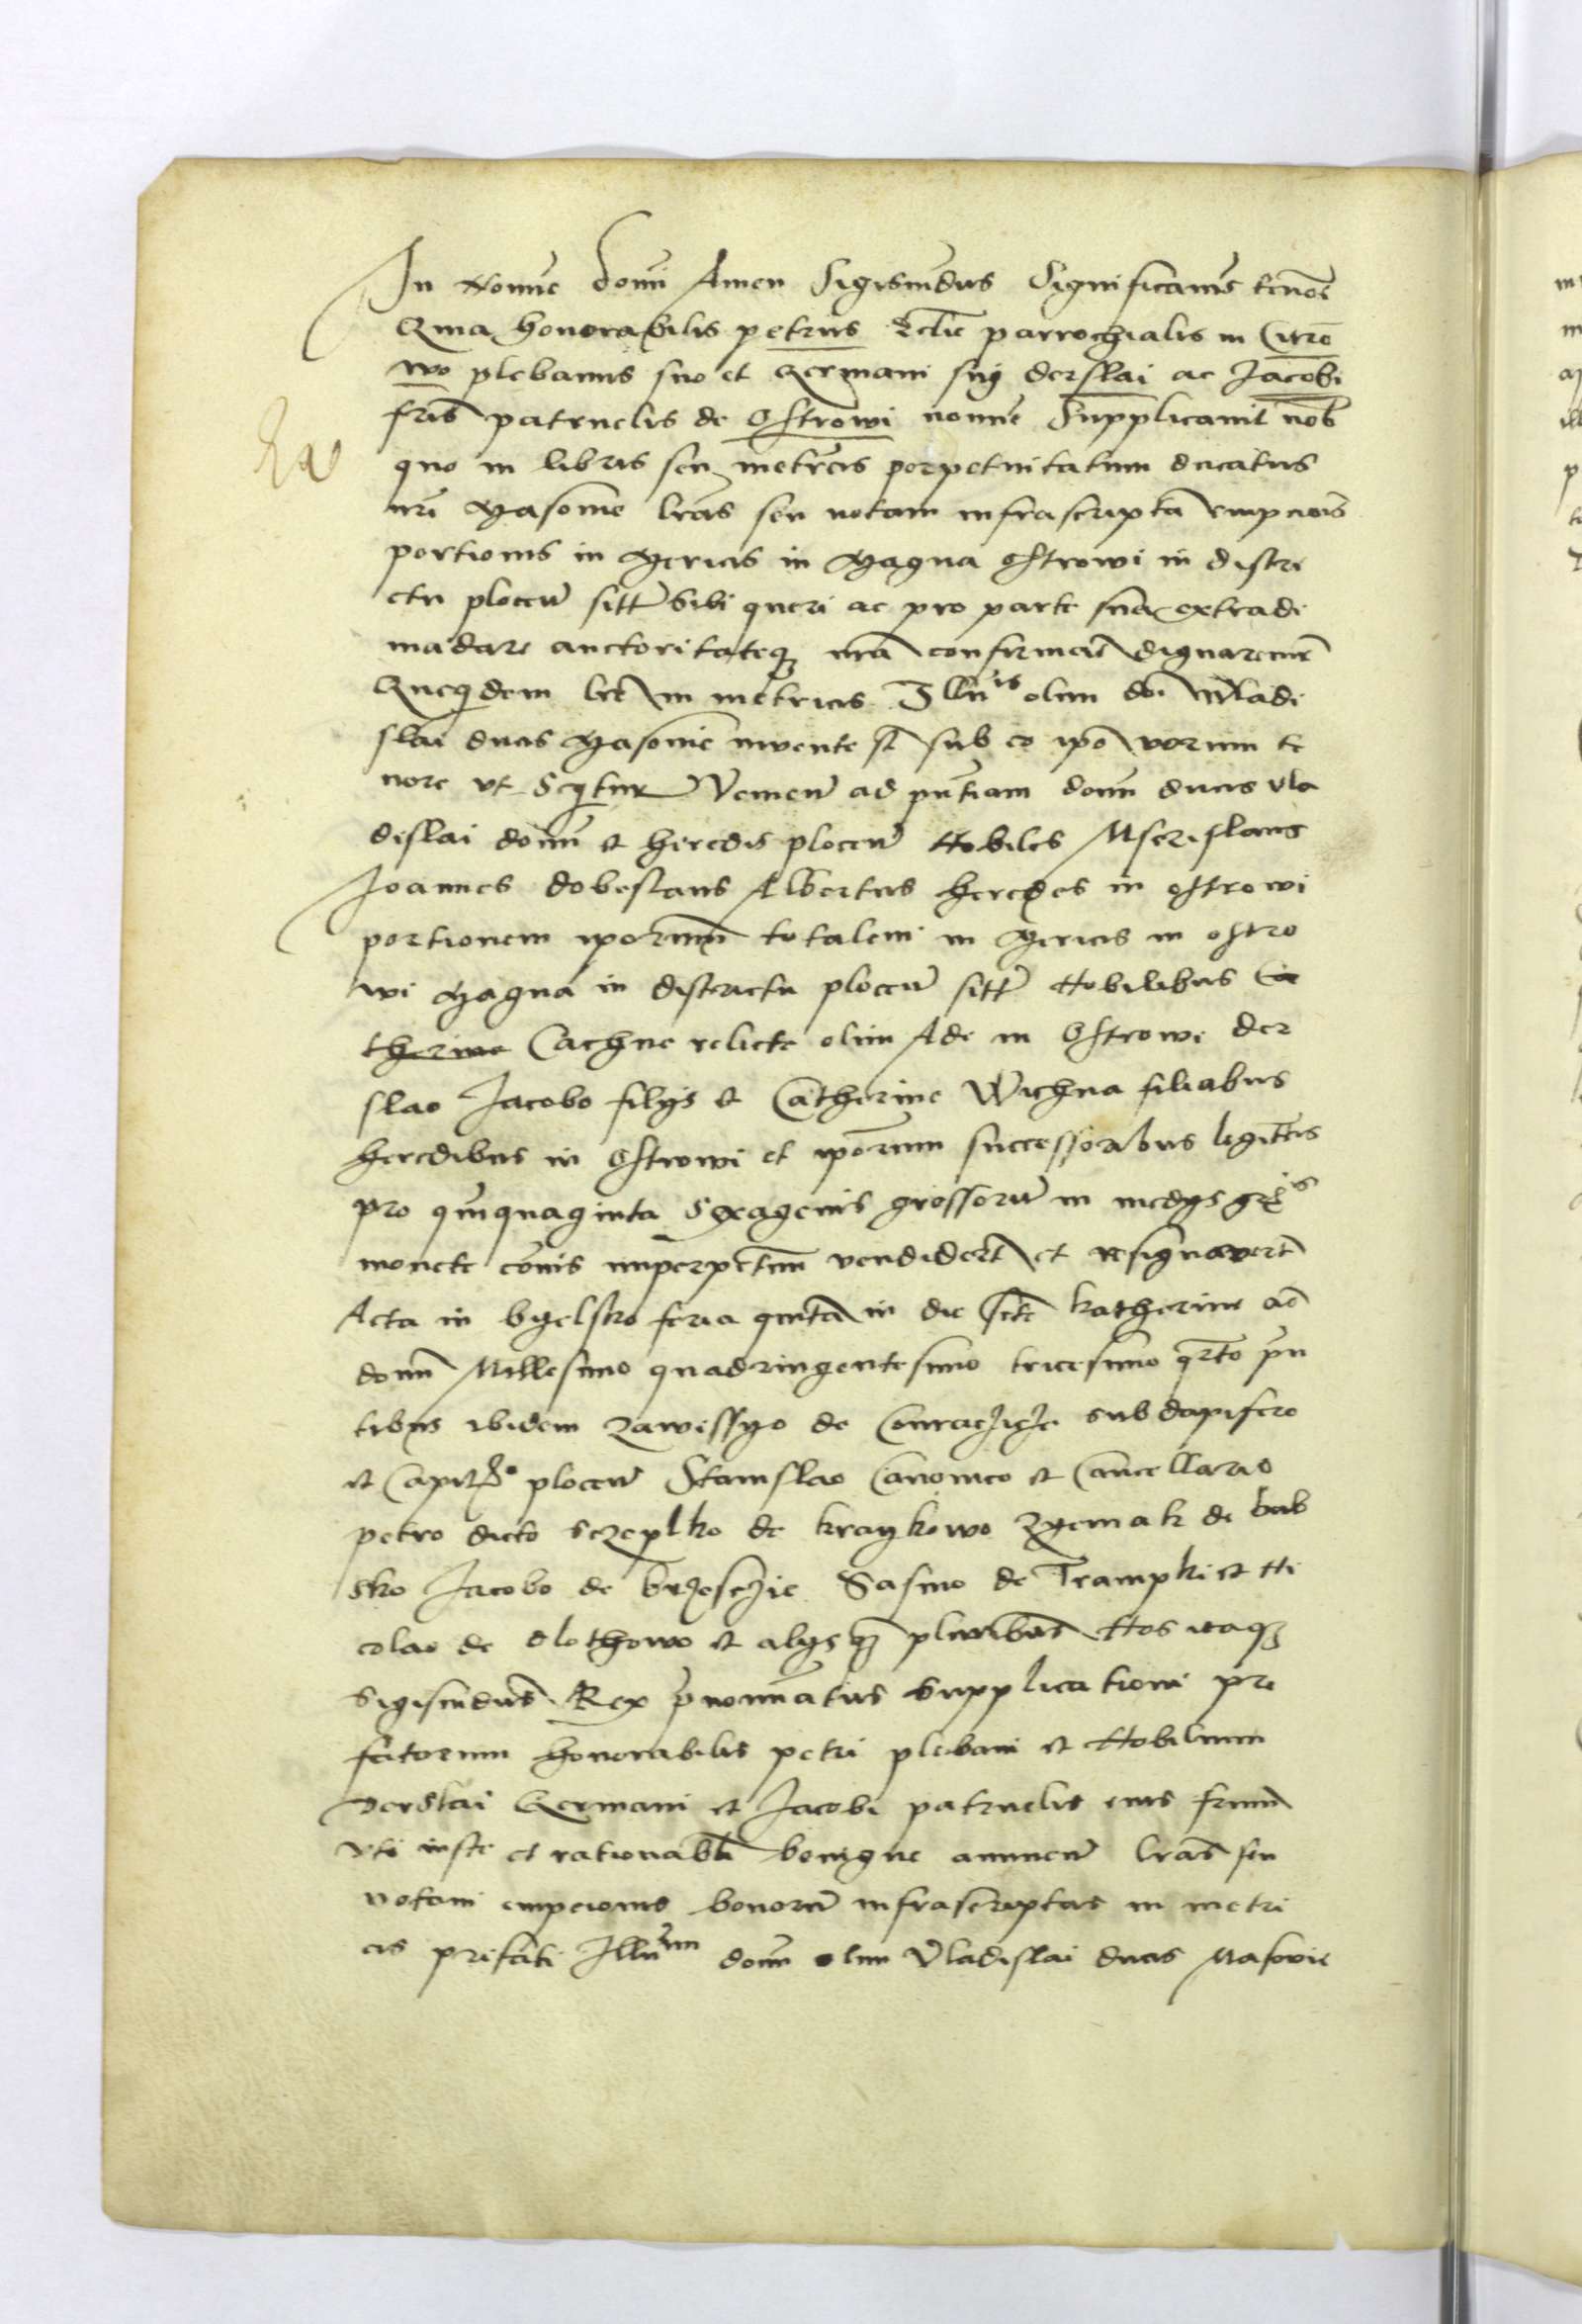 In Nomine domini Amen Sigismūdus Significamus tenore
Quia honorabilis petrus Ecclie parrochialis in Curo
wo plebanus suo et Germani sui derslai ac Jacobi
fris patruelis de Ostrowi nomine Supplicauit nob
quo in libris seu metricis perpetuitatum ducatus
nri Masouie lras seu notam infrascriptā empcionis
portionis in Mericis in Magna Ostrowi in distri
ctu plocen sitt Sibi queri ac pro parte sua extradi
mādare auctoritateq nrā confirmare dignaremr
Quequidem lre in metricis Illuis olim dni Wladi
slai ducis Masouie inuente st sub eo ipo verum te
nore vt Sequitur Venien ad pntiam domini ducis vla
dislai domini et heredis plocen Nobiles Msczislaus
Joannes dobeslaus Albertus heredes in ostrowi
portionem iporum totalem in Mericis in ostro
wi Magna in districtu plocen sitt Nobilibus Ca
therine Cachne relicte olim Ade in Ostrowi der
slao Jacobo filijs et Catherine Wichna filiabus
heredibus in Ostrowi et iporum successoribus legittimis
pro quinquaginta Sexagenis grossorū in medijs
monete cōis imperpetuum vendidert et resignauert
Acta in byelsko feria quinta in die scte katherine
domini Millesimo quadringentesimo tricesimo qrto pn
tibus ibidem zawissyo de subdapifero
et plocen Stanislao Canonico et Cancellario
petro dicto sczeplko de kraykowo zyemak de bab
sko Jacobo de brzesczie Sasino de Trampki et Ni
colao de olothowo et alijs pluribus Nos itaq
Sigismūdus Rex pnominatus Supplicationi pre
fatorum honorabilis petri plebani et Nobilium
Derslai Germani et Jacobi patruelis eius frum
vti iuste et rationabli benigne annuen lras seu
notam empcionis bonorū infrascriptas in metri
cis prefati domini olim Vladislai ducis Masovie